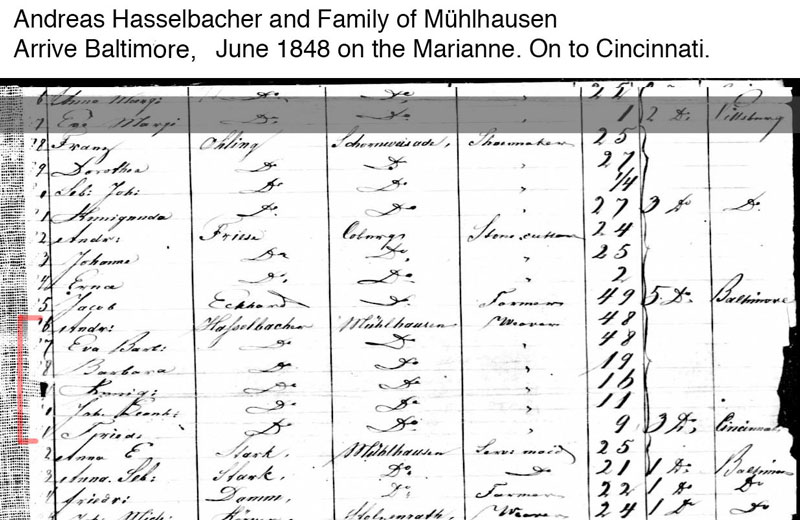 Andreas Hasselbacher and Family of Mühlhausen
Arrive Baltimore, June 1848 on the Marianne. On to Cincinnati.
6 Anna Margr Do Do " 22
7 Eva Margr Do Do " 1 2 Do Pittsburg
8 Franz Ohling Shoemaker 25
9 Dorothea Do Do " 27
Seb: Joh: Do Do " 1/4
1 Kunigunda Do Do " 27 3 Do Do
2 Andr: Coburg Stone cutter 24
3 Johanne Do Do " 25
4 Erna Do Do " 2
5 Jacob Eckhard Do Farmer 49 5 Do Baltimore
6 Andr: Hasselbacher Mühlhausen Weaver 48
7 Eva Barb: Do Do " 48
8 Barbara Do Do " 19
Kunig: Do Do " 16
Joh: Leonh: Do Do " 11
1 Fried: Do Do " 9 3 Do Cincinnati
2 Anna E Stark, Mühlhausen Serv: maid 25
3 Anna Seb: Stark, Do Do 21 1 Do Baltimore
4 Friedr: Damm, Do Farmer 22 1 Do Do
Joh: Mich: Weaver 24 1 Do Do